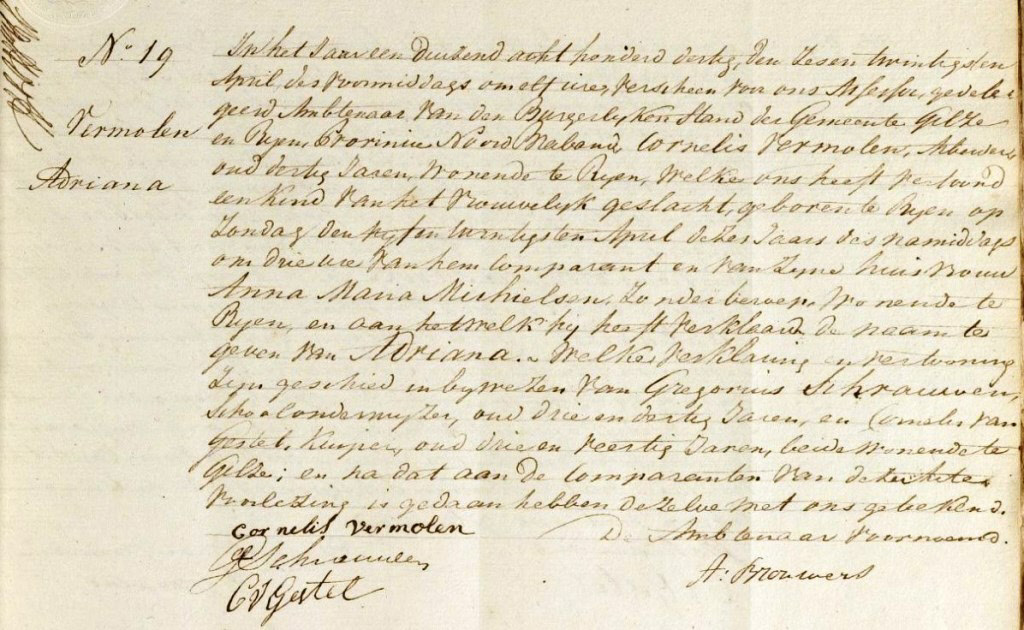 No. 19
Vermolen
Adriana
In het Jaar een Duizend acht honderd dertig, den zesen twintigsten
April, des voormiddags om elf ure, verscheen voor ons Assessor, gedele
geerd Ambtenaar van den Burgerlyken Stand der Gemeente Gilze
en Ryen, Provincie Noord Braband, Cornelis Vermolen, Arbeider
oud dertig Jaren, wonende te Ryen, welke ons heeft vertoond
een kind van het vrouwelyk geslacht, geboren te Ryen op
Zondag den vyf en twintigsten April dezes Jaars des namiddags
om drie ure van hem Comparant en van zyne huisvrouw
Anna Maria Michielsen, zonder beroep, wonende te
Ryen, en aan hetwelk hy heeft verklaard de naam te
geven van Adriana. Welke verklaring en vertooning
zyn geschied in bywezen van Gregorius Schrauwen,
Schoolonderwyzer, oud drie en dertig Jaren, en Cornelis van
Gestel, Kuiper, oud drie en veertig Jaren, beide wonende te
Gilze; en na dat aan de Comparanten van deze akte
voorlezing is gedaan hebben dezelve met ons getekend.
Cornelis vermolen
De Ambtenaar voornoemd.
G Schrauwen
A: Brouwers
C V Gestel